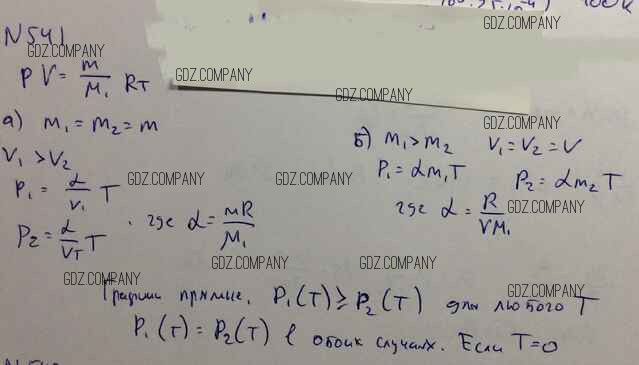 N541
PV = m/M₁ RT
а) m₁ = m₂ = m
V₁ > V₂
P₁ = α/V₁ T
P₂ = α/V_T T
где α = mR/M₁
б) m₁ > m₂ V₁ = V₂ = V
P₁ = αm₁T P₂ = αm₂T
где α = R/VM₁
Графики прямые, P₁(T) ≥ P₂(T) для любого T
P₁(T) = P₂(T) в обоих случаях. Если T=0
GDZ.COMPANY
GDZ.COMPANY
GDZ.COMPANY
GDZ.COMPANY
GDZ.COMPANY
GDZ.COMPANY
GDZ.COMPANY
GDZ.COMPANY
GDZ.COMPANY
GDZ.COMPANY
GDZ.COMPANY
GDZ.COMPANY